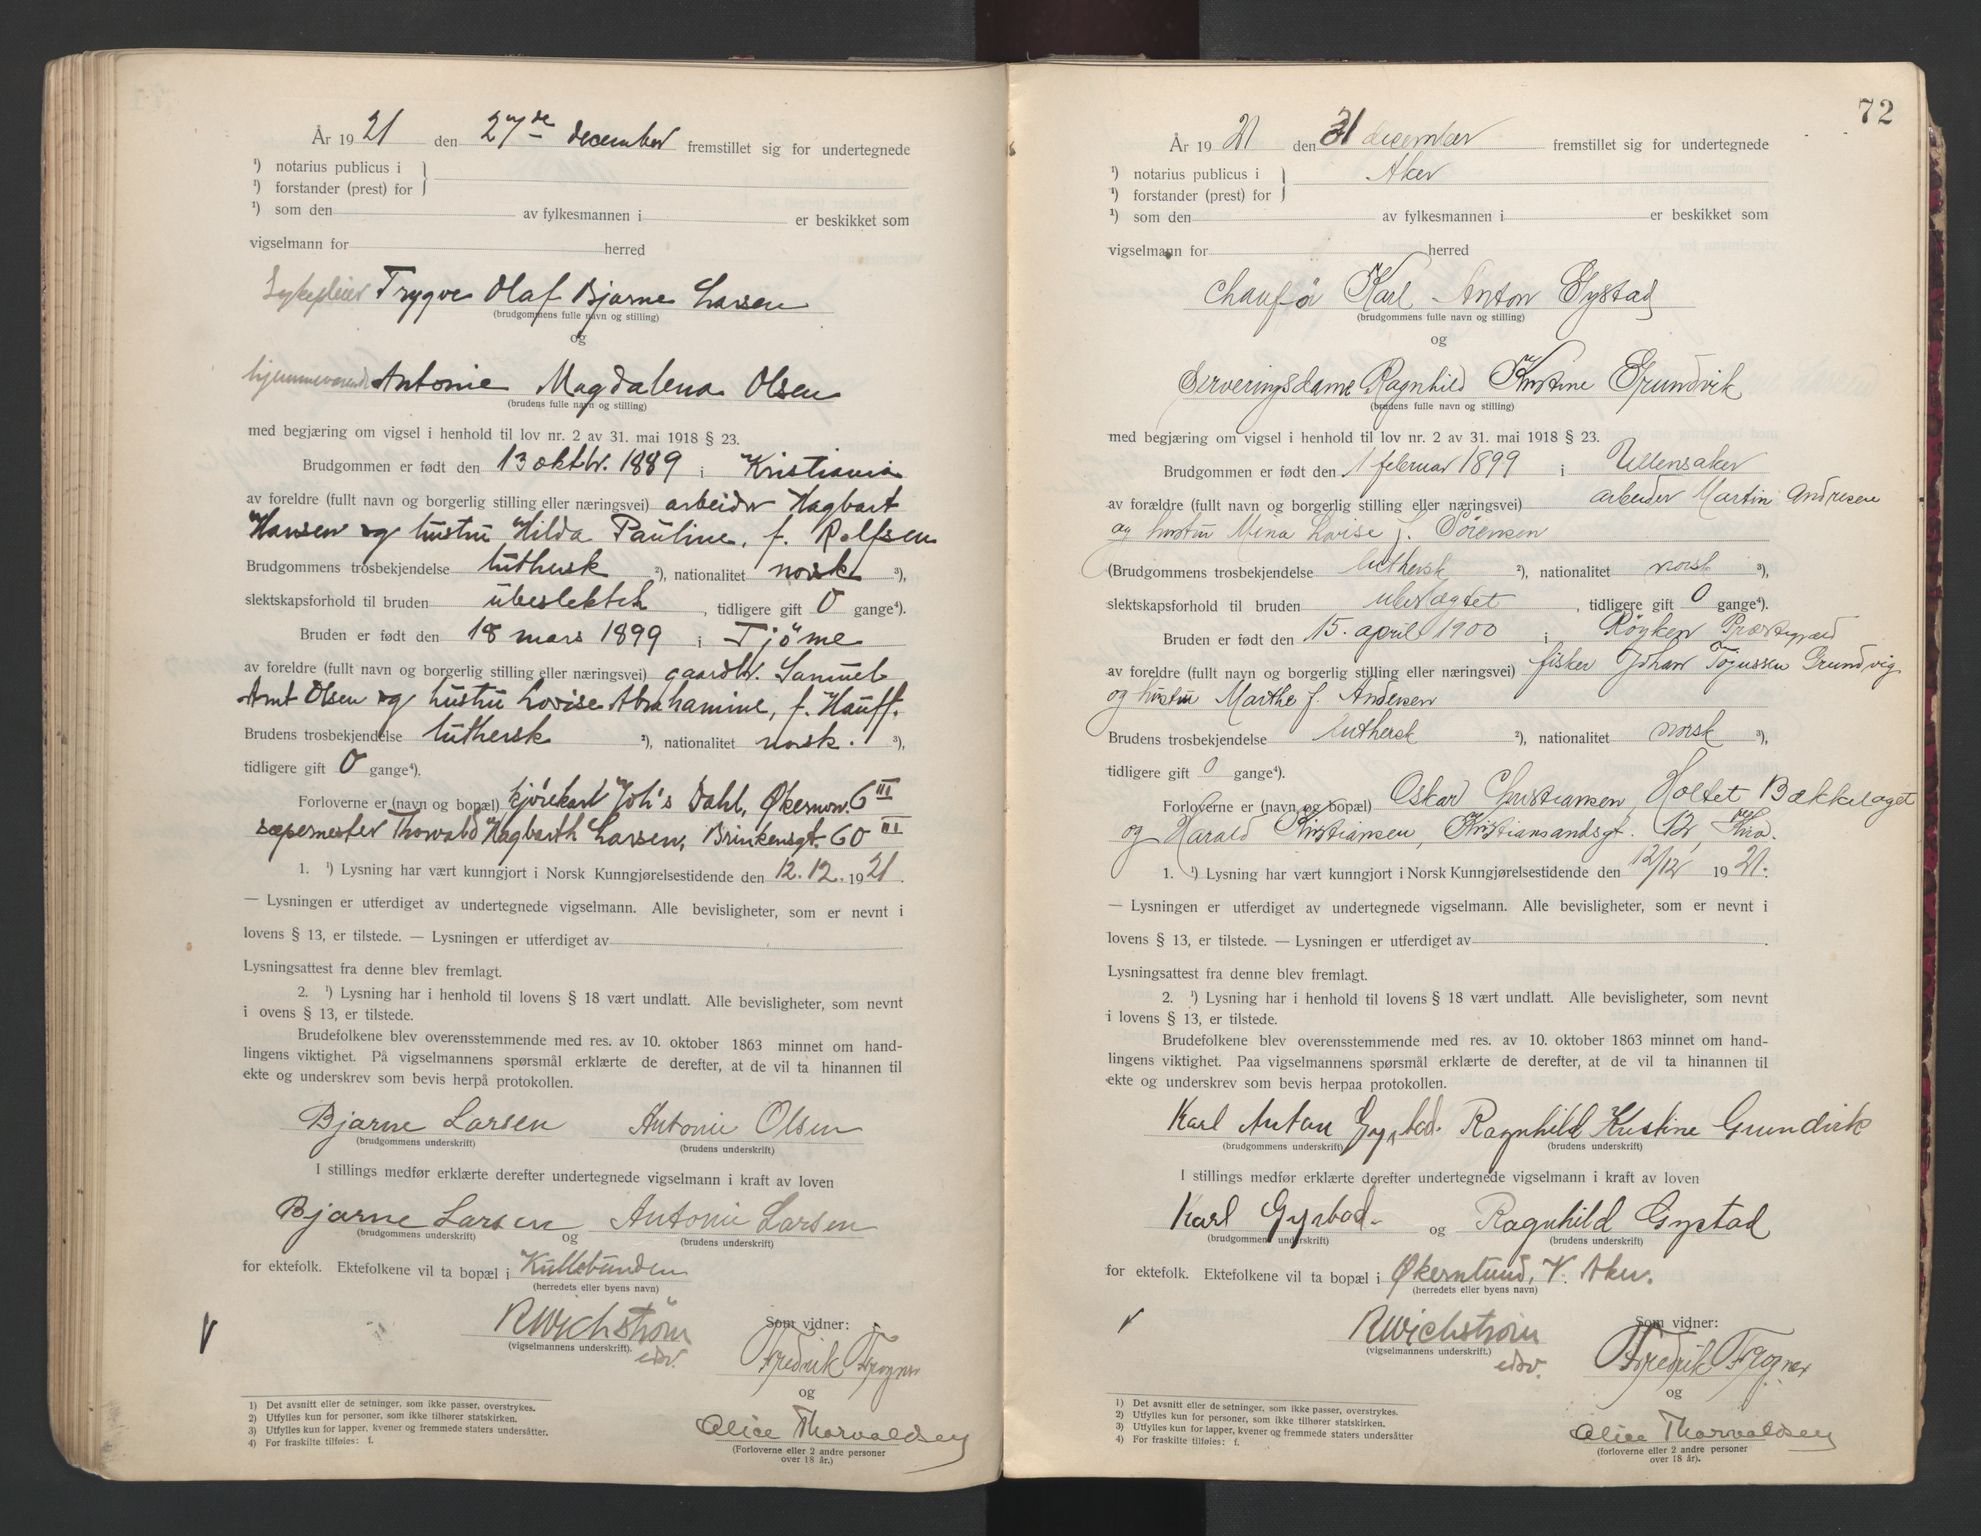 År 1921 den 27de december fremstillet sig for undertegnede
¹) notarius publicus i
¹) forstander (prest) for
¹) som den av fylkesmannen i er beskikket som
vigselmann for herred
Sykepleier Trygve Olaf Bjarne Larsen
(brudgommens fulle navn og stilling)
og
hjemmeværende Antonie Magdalena Olsen
(brudens fulle navn og stilling)
med begjæring om vigsel i henhold til lov nr. 2 av 31. mai 1918 § 23.
Brudgommen er født den 13 oktbr. 1889 i Kristiania
av foreldre (fullt navn og borgerlig stilling eller næringsvei) arbeider Hagbart
Hansen og hustru Hilda Pauline, f. Rolfsen
Brudgommens trosbekjendelse luthersk ²), nationalitet norsk ³),
slektskapsforhold til bruden ubeslektet, tidligere gift 0 gange⁴).
Bruden er født den 18 mars 1899 i Tjöme
av foreldre (fullt navn og borgerlig stilling eller næringsvei) gaardbr. Samuel
Amt Olsen og hustru Lovise Abrahamine, f. Hauff.
Brudens trosbekjendelse luthersk ²), nationalitet norsk. ³),
tidligere gift 0 gange⁴).
Forloverne er (navn og bopæl) kjörekarl Joh's Dahl, Økernvn. 6 III
sæpemester Thorvald Hagbarth Larsen, Brinkensgt. 60 III
1. ¹) Lysning har vært kunngjort i Norsk Kunngjørelsestidende den 12.12.1921.
— Lysningen er utferdiget av undertegnede vigselmann. Alle bevisligheter, som er nevnt i
lovens § 13, er tilstede. — Lysningen er utferdiget av
Lysningsattest fra denne blev fremlagt.
2. ¹) Lysning har i henhold til lovens § 18 vært undlatt. Alle bevisligheter, som nevnt
i ovens § 13, er tilstede.
Brudefolkene blev overensstemmende med res. av 10. oktober 1863 minnet om hand-
lingens viktighet. På vigselmannens spørsmål erklærte de derefter, at de vil ta hinannen til
ekte og underskrev som bevis herpå protokollen.
Bjarne Larsen Antonie Olsen
(brudgommens underskrift) (brudens underskrift)
I stillings medfør erklærte derefter undertegnede vigselmann i kraft av loven
Bjarne Larsen og Antonie Larsen
(brudgommens underskrift) (brudens underskrift)
for ektefolk. Ektefolkene vil ta bopæl i Kullebunden
(herredets eller byens navn)
RWichstrøm
(vigselmannens underskrift).
edv.
Som vidner:
Fredrik Frogner
og
Alice Thorvaldsen
(Forloverne eller 2 andre personer
over 18 år.)
1) Det avsnitt eller de setninger, som ikke passer, overstrykes.
2) Utfylles kun for personer, som ikke tilhører statskirken.
3) Utfylles kun for lapper, kvener og fremmede staters undersåtter.
4) For fraskilte tilføies: f.
72
År 1921 den 31 december fremstillet sig for undertegnede
¹) notarius publicus i Aker
¹) forstander (prest) for
¹) som den av fylkesmannen i er beskikket som
vigselmann for herred
chaufø Karl Anton Gystad
(brudgommens fulle navn og stilling)
og
Serveringsdame Ragnhild Kristine Grundvik
(brudens fulle navn og stilling)
med begjæring om vigsel i henhold til lov nr. 2 av 31. mai 1918 § 23.
Brudgommen er født den 1 februar 1899 i Ullensaker
av forældre (fullt navn og borgerlig stilling eller næringsvei) arbeider Martin Andresen
og hustru Mina Lovise f. Sörensen
(Brudgommens trosbekjendelse luthersk ²), nationalitet norsk ³),
slektskapsforhold til bruden ubeslægtet, tidligere gift 0 gange⁴).
Bruden er født den 15. april 1900 i Röyken Præstegjæld
av foreldre (fullt navn og borgerlig stilling eller næringsvei) fisker Johan Tojussen Grundvig
og hustru Marthe f. Andersen
Brudens trosbekjendelse luthersk ²), nationalitet norsk ³),
tidligere gift 0 gange⁴).
Forloverne er (navn og bopæl) Oskar Christiansen Holtet Bækkelaget
og Harald Kristiansen, Kristiansandsgt. 12, Kra.
1. ¹) Lysning har vært kunngjort i Norsk Kunngjørelsestidende den 12/12 1921.
— Lysningen er utferdiget av undertegnede vigselmann. Alle bevisligheter, som er nevnt i
lovens § 13, er tilstede. — Lysningen er utferdiget av
Lysningsattest fra denne blev fremlagt.
2. ¹) Lysning har i henhold til lovens § 18 vært undlatt. Alle bevisligheter, som nevnt
i lovens § 13, er tilstede.
Brudefolkene blev overensstemmende med res. av 10. oktober 1863 minnet om hand-
lingens viktighet. Paa vigselmannens spørsmål erklærte de derefter, at de vil ta hinannen til
ekte og underskrev som bevis herpaa protokollen.
Karl Anton Gystad. Ragnhild Kristine Grundvik
(brudgommens underskrift) (brudens underskrift)
I stillings medfør erklærte derefter undertegnede vigselmann i kraft av loven
Karl Gystad. og Ragnhild Gystad
(brudgommen underskrift) (brudens underskrift)
for ektefolk. Ektefolkene vil ta bopæl i Økernlund, V. Aker.
(herredets eller byens navn)
RWichstrøm
(vigselmannens underskrift.)
edv.
Som vidner:
Fredrik Frogner
og
Alice Thorvaldsen
(forloverne eller 2 andre personer
over 18 år).
1) Det avsnitt eller de setninger, som ikke passer, overstrykes.
2) Utfylles kun for personer, som ikke tilhører statskirken.
3) Utfylles kun for lapper, kvener og fremmede staters undersåtter
4) For fraskilte tilføies: f.